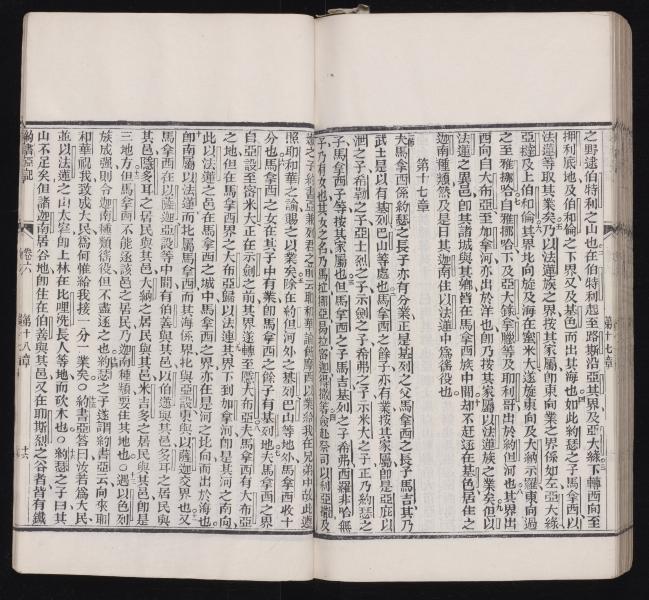 第十七章
之野逮伯特利之山也在伯特利起至路斯沿亞其界及亞大綠下轉西向至
押利底地及伯和倫之下界又及基色而出其海也如此約瑟之子馬拿西以
法蓮等取其業矣乃以法蓮族之界按其家屬卽東向業之界係如左亞大綠
亞撻及上伯和倫其界北向旋及海在蜜米大遂旋東向及大納示羅東向過
之至雅挪哈自雅挪哈下及亞大錸拿臘等及耶利哥出於約但河也其界出
西向自大布亞至加拿河亦出於洋也卽乃按其家屬以法蓮族之業矣但以
法蓮之異邑卽其諸城與其鄉皆在馬拿西族中間却不赶逐在基色居住之
迦南種類然及是日其迦南住以法蓮中爲徭役也
第十七章
夫馬拿西係約瑟之長子亦有分業正是基列之父馬拿西之長子馬吉其乃
武士是以有基列巴山等處也馬拿西之餘子亦有業按其家屬卽是亞庇以
泄之子希勒之子亞士烈之子示劍之子希弗之子示米大之子正乃約瑟之
子馬拿西子等按其家屬也但馬拿西之子馬吉基列之子希弗西羅非哈無
子乃有女也其女之名乃馬拉挪亞
之子約書亞兼列君之前云耶和華諭飭摩西以業給我在兄弟中故此遵
照耶和華之諭賜之以業矣除在約但河外之基列巴山等地外馬拿西收十
分也馬拿西之女在其子中有業卽馬拿西之餘子有基列地夫馬拿西之界
自亞設至密米大正在示劍之前其界遂轉至大布亞夫馬拿西有大布亞
之地但在馬拿西界之大布亞歸以法連其界下到加拿河卽是其河之南向
此以法蓮之邑在馬拿西之城中馬拿西之界亦在是河之北向而出於海也
卽南屬以法蓮而北屬馬拿西而其海係界北與亞設東與以薩迦交界也又
馬拿西在以薩迦亞設等中間有伯善與其邑以伯蓮與其邑多耳之居民與
其邑隱多耳之居民與其邑大納之居民與其邑米吉多之居民與其邑卽是
三地方但馬拿西不能逐該邑之居民乃迦南種類要住其地也○遇以色列
族成強則令迦南種類徭役但不盡逐之也約瑟之子遂謂約書亞云向來耶
和華祝我致成大民爲何惟給我一分一業矣○約書亞答曰汝若爲大民
並以法蓮之山太窄卽上林在比哩洗長人等地而砍木也○約瑟之子曰其
山不足矣但諸迦南居谷地卽住在伯善與其邑又在耶斯烈之谷者皆有鐵
卷六 第十八章